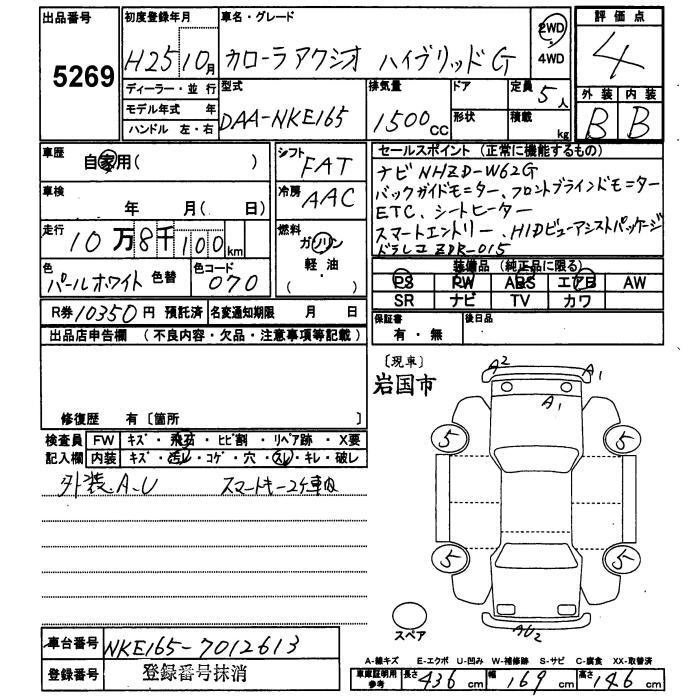 出品番号 5269
初度登録年月 H25 10月
車名・グレード カローラアクシオ ハイブリッドG
2WD・4WD
評価点 4
ディーラー・並行
モデル年式 年
ハンドル 左・右
型式 DAA-NKE165
排気量 1500cc
ドア
形状
定員 5人
積載 kg
外装 内装
B B
車歴 自家用( )
シフト FAT
車検 年 月( 日)
冷房 AAC
走行 10万8千100km
燃料 ガソリン
軽・油
( )
色 パールホワイト 色替
色コード 070
R券 10350円 預託済 名変通知期限 月 日
セールスポイント (正常に機能するもの)
ナビNHZD-W62G
バックガイドモニター、フロントブラインドモニター
ETC、シートヒーター
スマートエントリー、HIDビューアシストパッケージ
ドラレコZDR-015
装備品 (純正品に限る)
PS PW ABS エアB AW
SR ナビ TV カワ
保証書 有・無
後日品
出品店申告欄 (不良内容・欠品・注意事項等記載)
修復歴 有〔箇所 〕
検査員記入欄
FW キズ・飛石・ヒビ割・リペア跡・X要
内装 キズ・汚レ・コゲ・穴・スレ・キレ・破レ
外装.A.U スマートキー2ケ車内
〔現車〕
岩国市
A2
A1
A1
5 5
5 5
AU2
スペア
A-線キズ E-エクボ U-凹み W-補修跡 S-サビ C-腐食 XX-取替済
車庫証明用参考 長さ 436cm 幅 169cm 高さ 146cm
車台番号 NKE165-7012613
登録番号 登録番号抹消